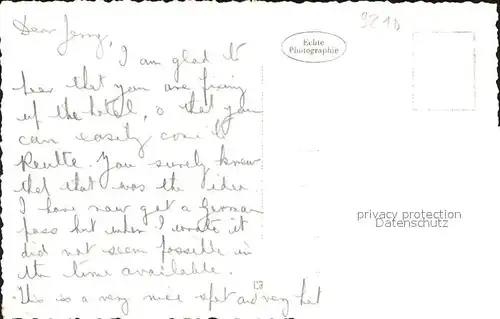 Dear Jerry,
I am glad to
hear that you are fixing
up the hotel, so that you
can easily come to
Reutte. You surely knew
that that was the idea
I have now got a German
pass but when I wrote it
did not seem possible in
the time available.
This is a very nice spot and very hot
Echte
Photographie
privacy protection
Datenschutz